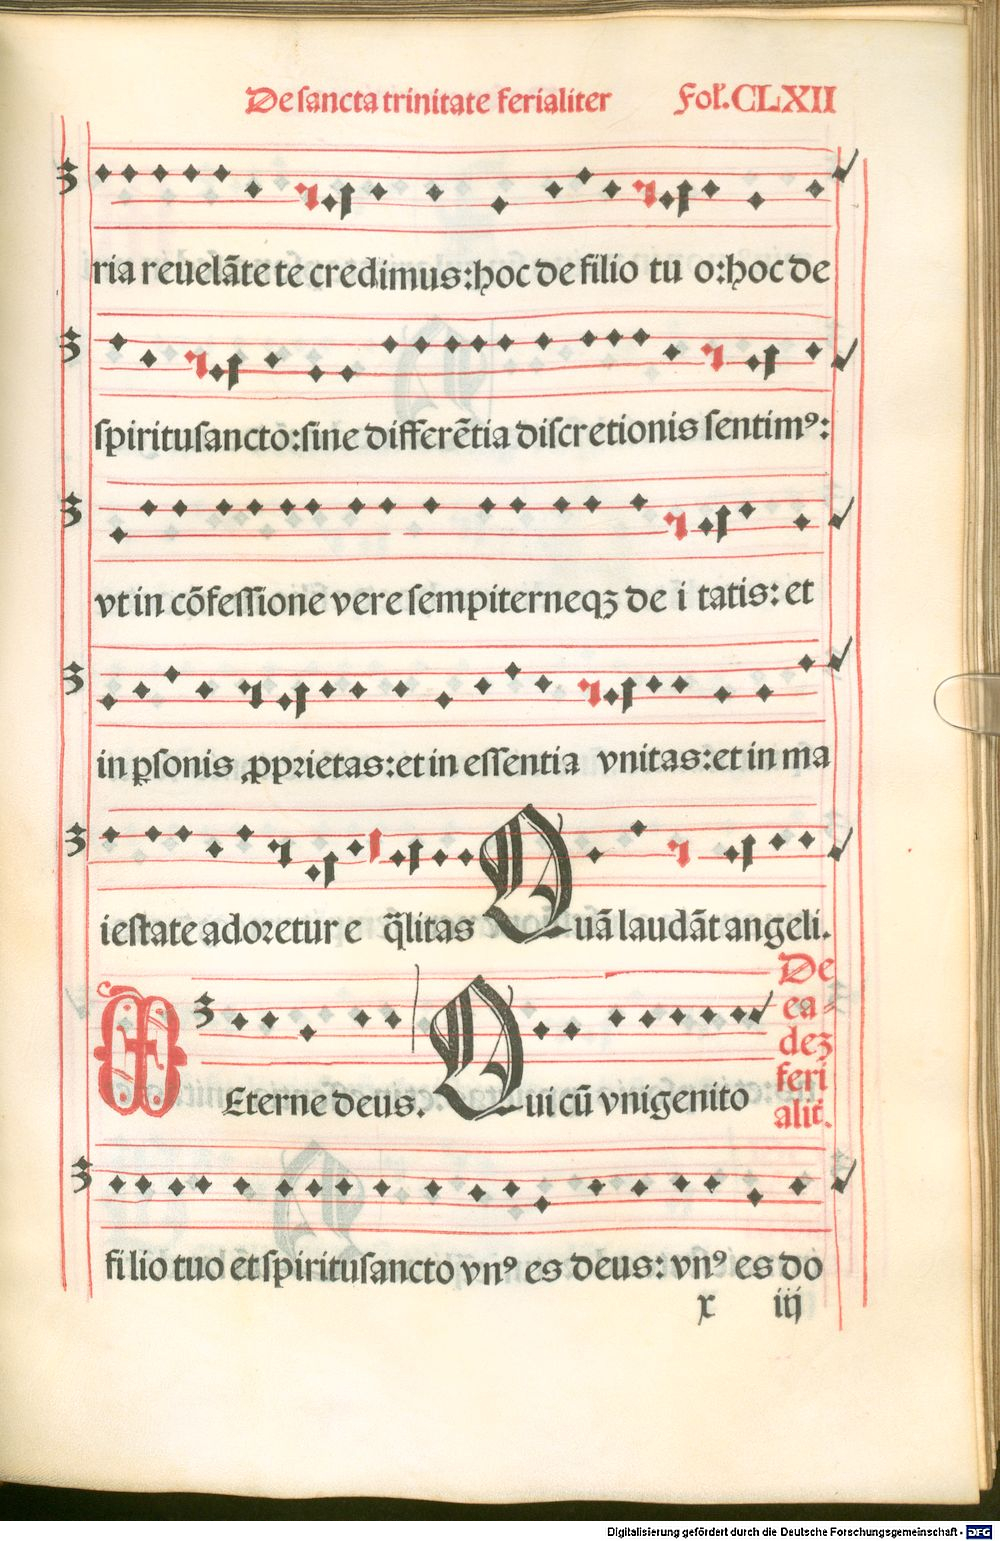 De sancta trinitate ferialiter Fol.CLXII
ria reuelãte te credimus:hoc de filio tu o:hoc de
spiritusancto:sine differẽtia discretionis sentimꝰ:
vt in cõfessione vere sempiterneqꝫ de i tatis: et
in ꝑsonis ꝓprietas:et in essentia vnitas:et in ma
iestate adoretur e q̃litas Quã laudãt angeli.
Eterne deus. Qui cũ vnigenito
De
ea-
deꝫ
feri
alit̃.
filio tuo et spiritusancto vnꝰ es deus: vnꝰ es do
x iij
Digitalisierung gefördert durch die Deutsche Forschungsgemeinschaft - DFG